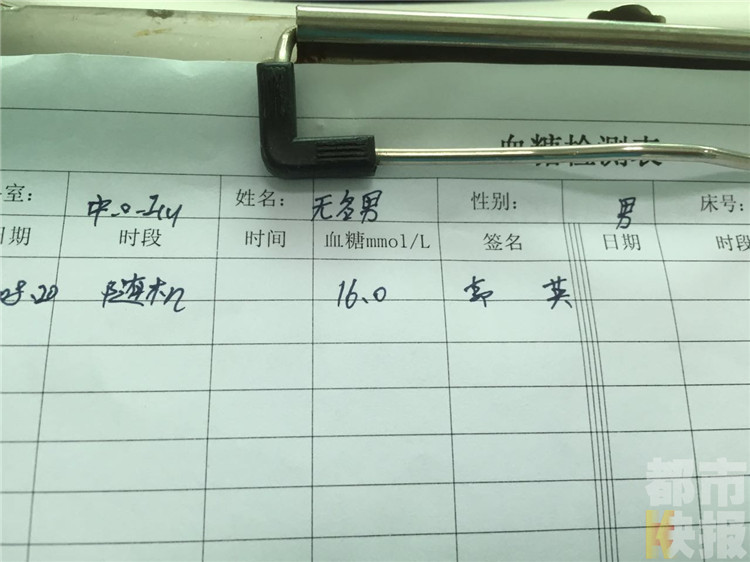 血糖检测表
室: 中心ICU 姓名: 无名男 性别: 男 床号:
日期 时段 时间 血糖mmol/L 签名 日期 时段
随机 16.0 郭英
都市
快报